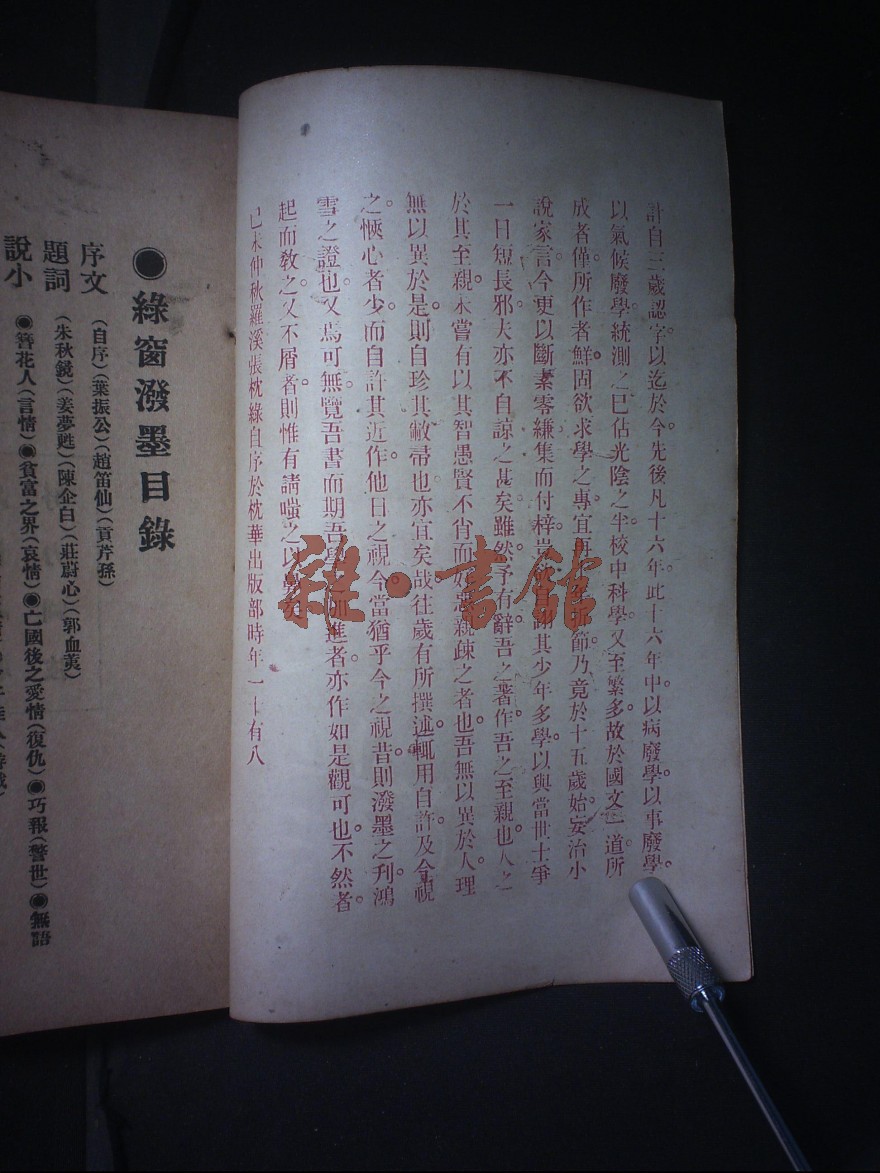 計自三歲認字以迄於今先後凡十六年此十六年中以病廢學以事廢學。
以氣候廢學統測之已佔光陰之半校中科學又至繁多故於國文一道所
成者僅所作者鮮固欲求學之專宜 節乃竟於十五歲始妄治小
說家言今更以斷素零縑集而付梓 其少年多學以與當世士爭
一日短長邪夫亦不自諒之甚矣雖然予有辭吾之著作吾之至親也人之
於其至親未嘗有以其智愚賢不肖而 親疎之者也吾無以異於人理
無以異於是則自珍其敝帚也亦宜矣哉往歲有所撰述輒用自許及今視
之愜心者少而自許其近作他日之視今當猶乎今之視昔則潑墨之刋鴻
雪之證也又焉可無覽吾書而期吾 進者亦作如是觀可也不然者
起而教之又不屑者則惟有請嗤之以鼻矣
己未仲秋羅溪張枕綠自序於枕華出版部時年一十有八
雜·書館
●綠窗潑墨目錄
序文 (自序)(葉振公)(趙笛仙)(貢芹孫)
題詞 (朱秋鏡)(姜夢甦)(陳企白)(莊蔚心)(郭血羮)
說小 ●簪花人(言情)●貧富之界(哀情)●亡國後之愛情(復仇)●巧報(警世)●無語